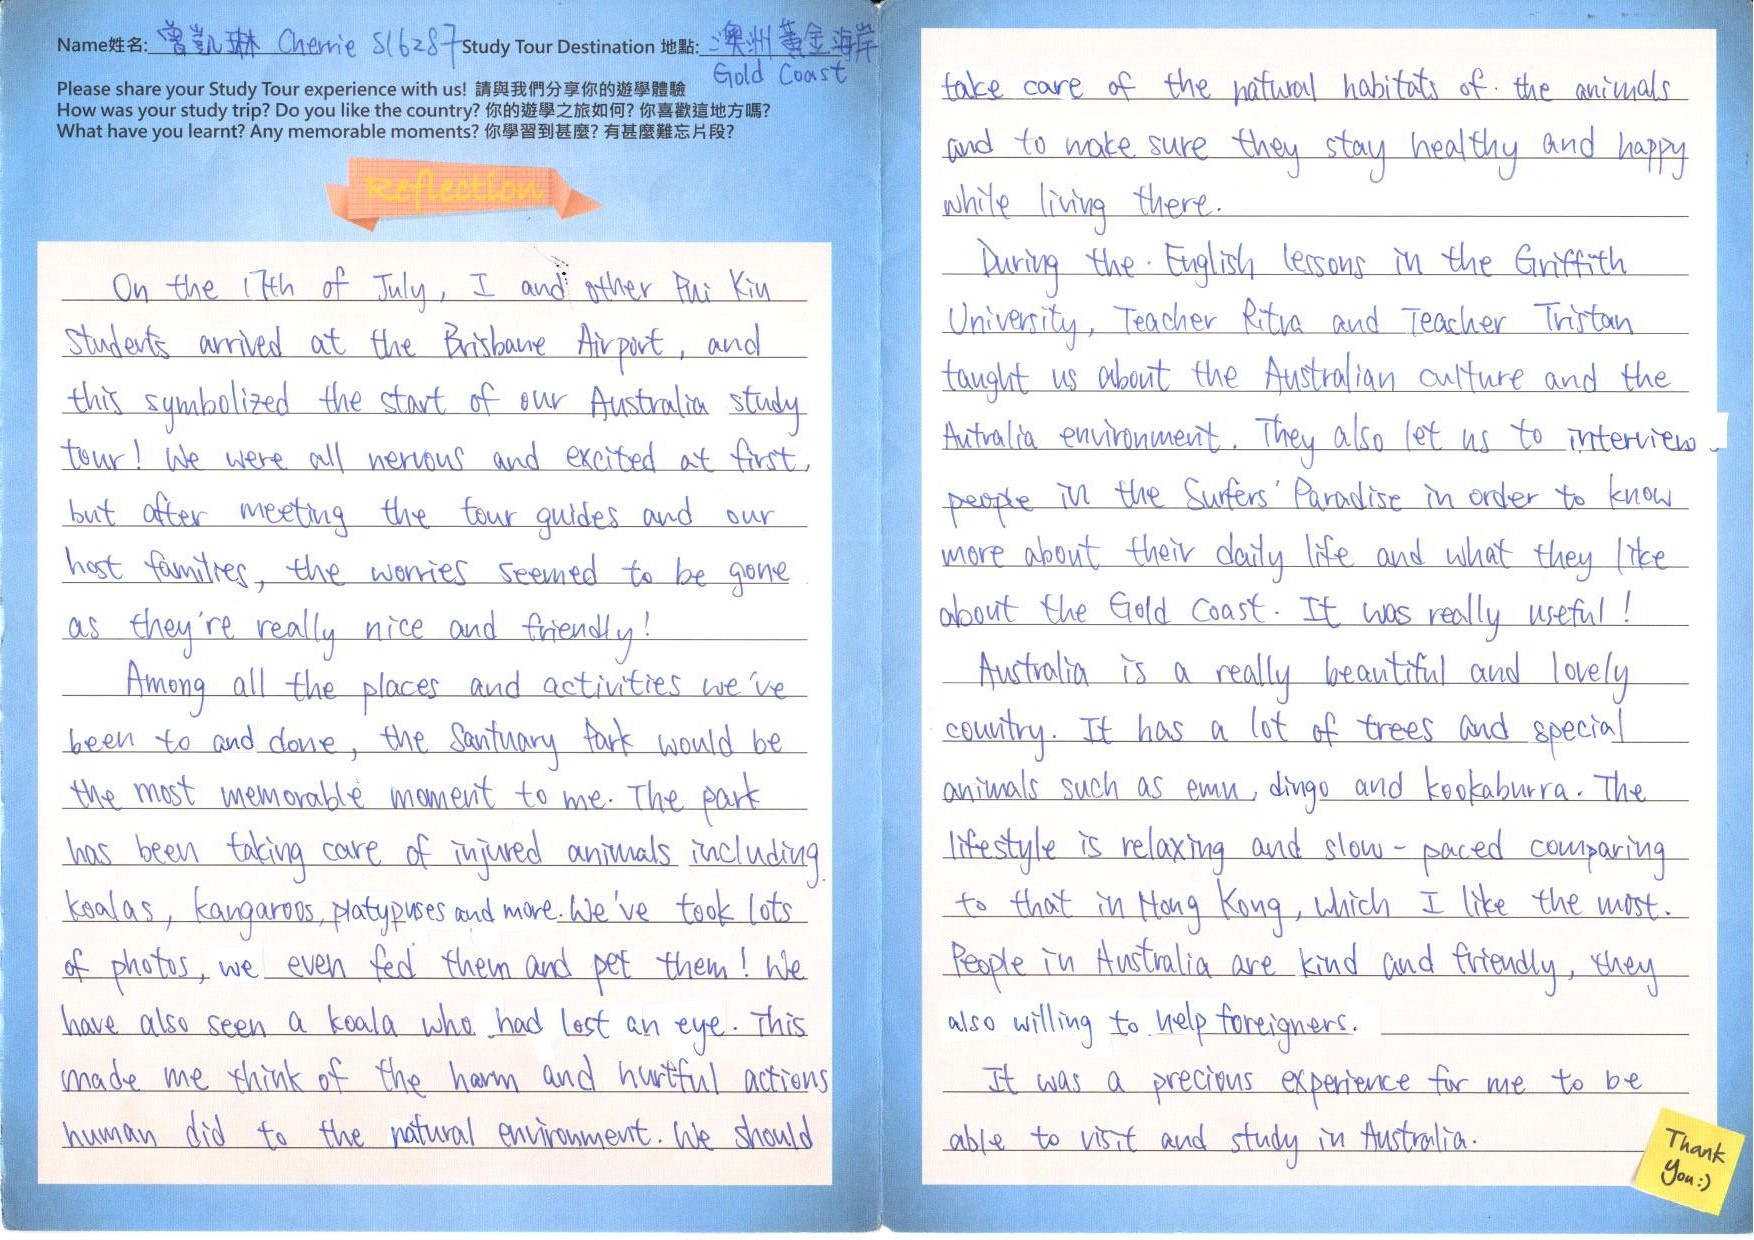 Name姓名: 曾凱琳 Cherrie S16287 Study Tour Destination 地點: 澳洲黃金海岸
Gold Coast
Please share your Study Tour experience with us! 請與我們分享你的遊學體驗
How was your study trip? Do you like the country? 你的遊學之旅如何? 你喜歡這地方嗎?
What have you learnt? Any memorable moments? 你學習到甚麼? 有甚麼難忘片段?
Reflection
On the 17th of July, I and other Pui Kiu
students arrived at the Brisbane Airport, and
this symbolized the start of our Australia study
tour! We were all nervous and excited at first,
but after meeting the tour guides and our
host families, the worries seemed to be gone
as they're really nice and friendly!
Among all the places and activities we've
been to and done, the Santuary Park would be
the most memorable moment to me. The park
has been taking care of injured animals including
koalas, kangaroos, platypuses and more. We've took lots
of photos, we even fed them and pet them! We
have also seen a koala who had lost an eye. This
made me think of the harm and hurtful actions
human did to the natural environment. We should
take care of the natural habitats of the animals
and to make sure they stay healthy and happy
while living there.
During the English lessons in the Griffith
University, Teacher Ritva and Teacher Tristan
taught us about the Australian culture and the
Autralia environment. They also let us to interview
people in the Surfers' Paradise in order to know
more about their daily life and what they like
about the Gold Coast. It was really useful!
Australia is a really beautiful and lovely
country. It has a lot of trees and special
animals such as emu, dingo and kookaburra. The
lifestyle is relaxing and slow-paced comparing
to that in Hong Kong, which I like the most.
People in Australia are kind and friendly, they
also willing to help foreigners.
It was a precious experience for me to be
able to visit and study in Australia.
Thank
You:)